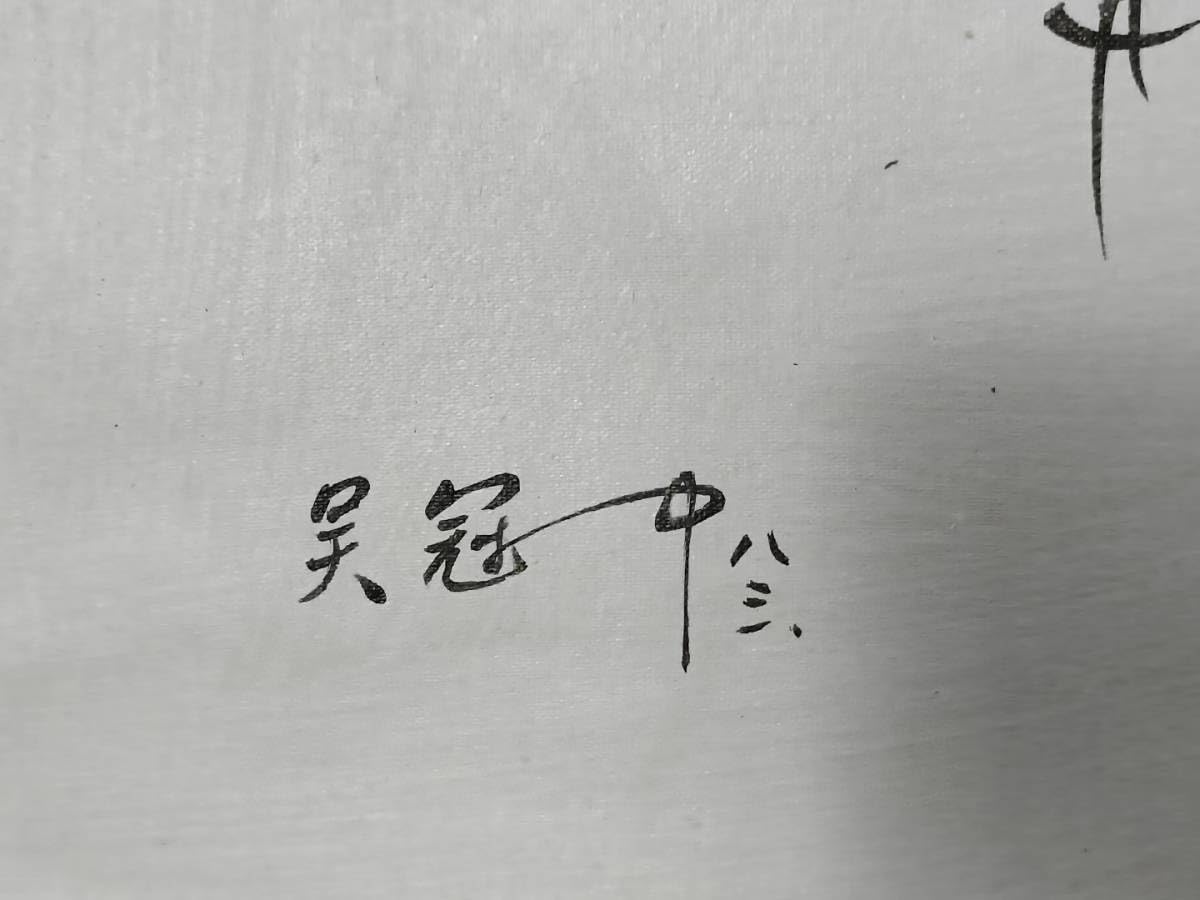 吴冠中
八三、